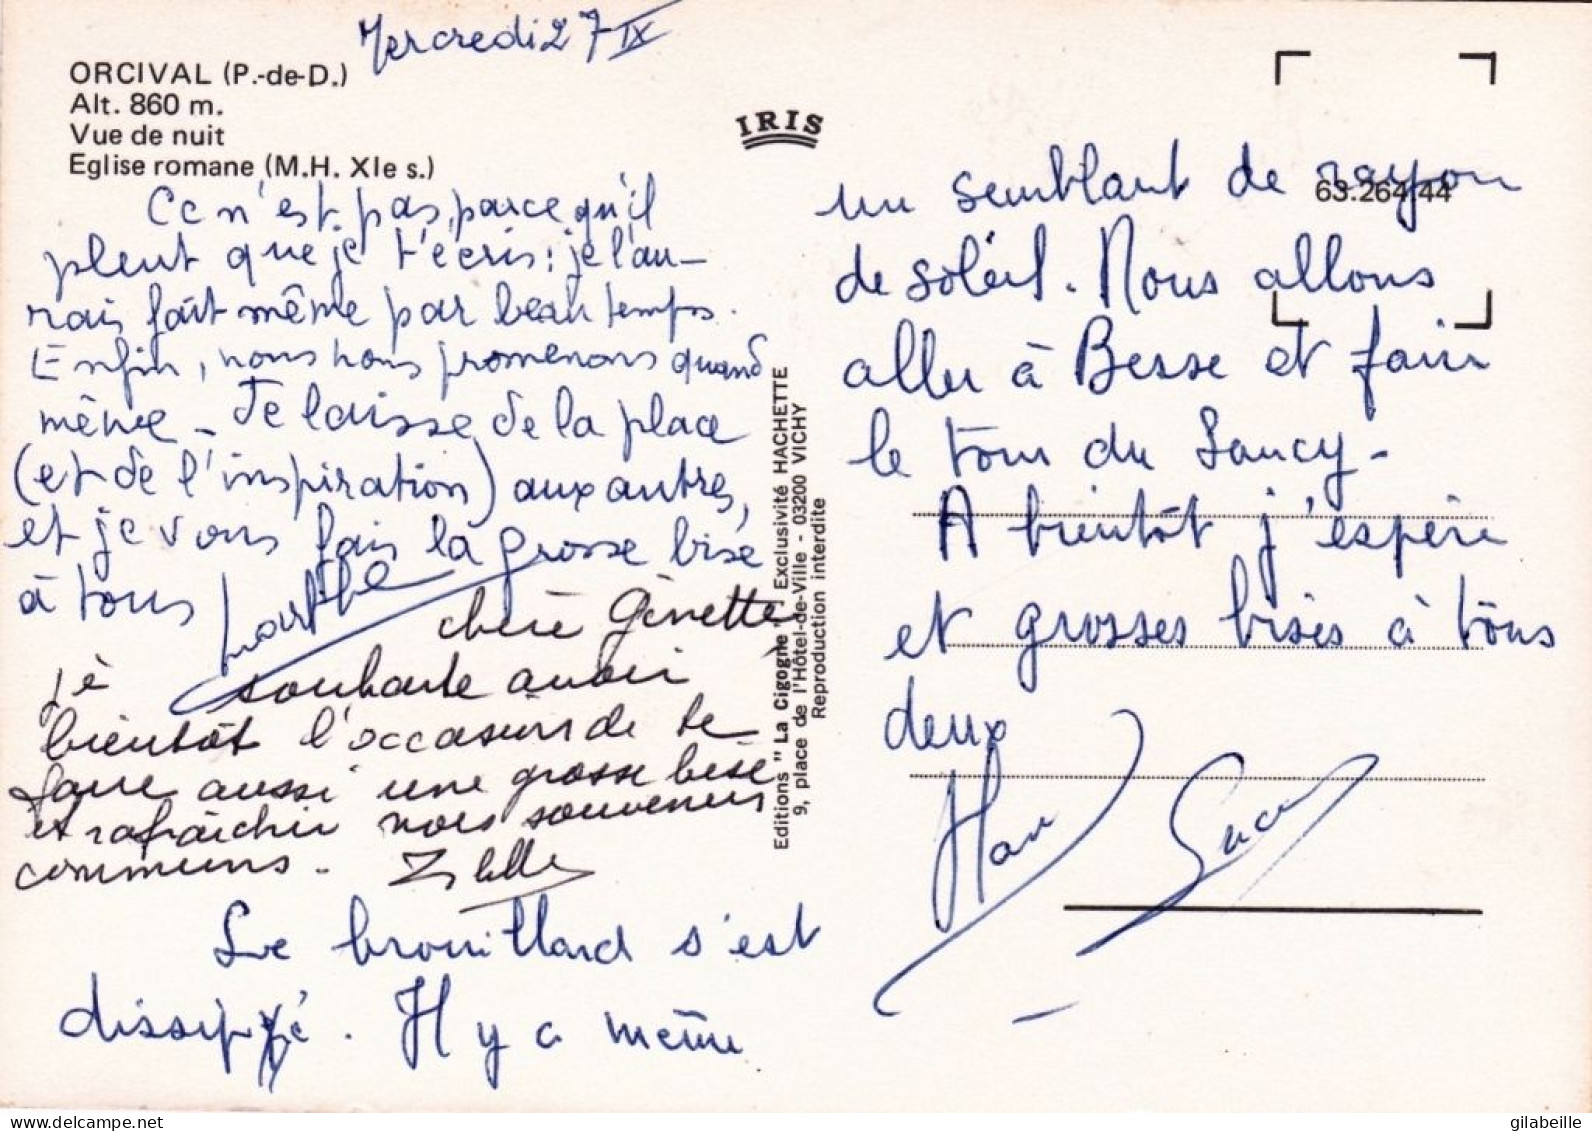 Mercredi 27 IX
ORCIVAL (P.-de-D.)
Alt. 860 m.
Vue de nuit
Eglise romane (M.H. XIe s.)
Ce n'est pas parce qu'il
pleut que je t'écris : je l'au-
rais fait même par beau temps.
Enfin, nous nous promenons quand
même - Je laisse de la place
(et de l'inspiration) aux autres,
et je vous fais la grosse bise
à tous
Marthe
chère Ginette
je souhaite avoir
bientôt l'occasion de te
faire aussi une grosse bise
et rafraîchir nos souvenirs
communs -
Le brouillard s'est
dissipé. Il y a même
IRIS
Editions "La Cigogne" Exclusivité HACHETTE
9, place de l'Hôtel-de-Ville - 03200 VICHY
Reproduction interdite
63.264.44
un semblant de rayon
de soleil. Nous allons
aller à Besse et faire
le tour du Sancy -
A bientôt j'espère
et grosses bises à tous
deux
gilabeille
delcampe.net